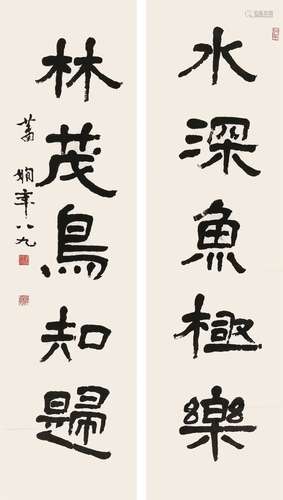 水深魚極樂
林茂鳥知歸
蕭嫻年八九